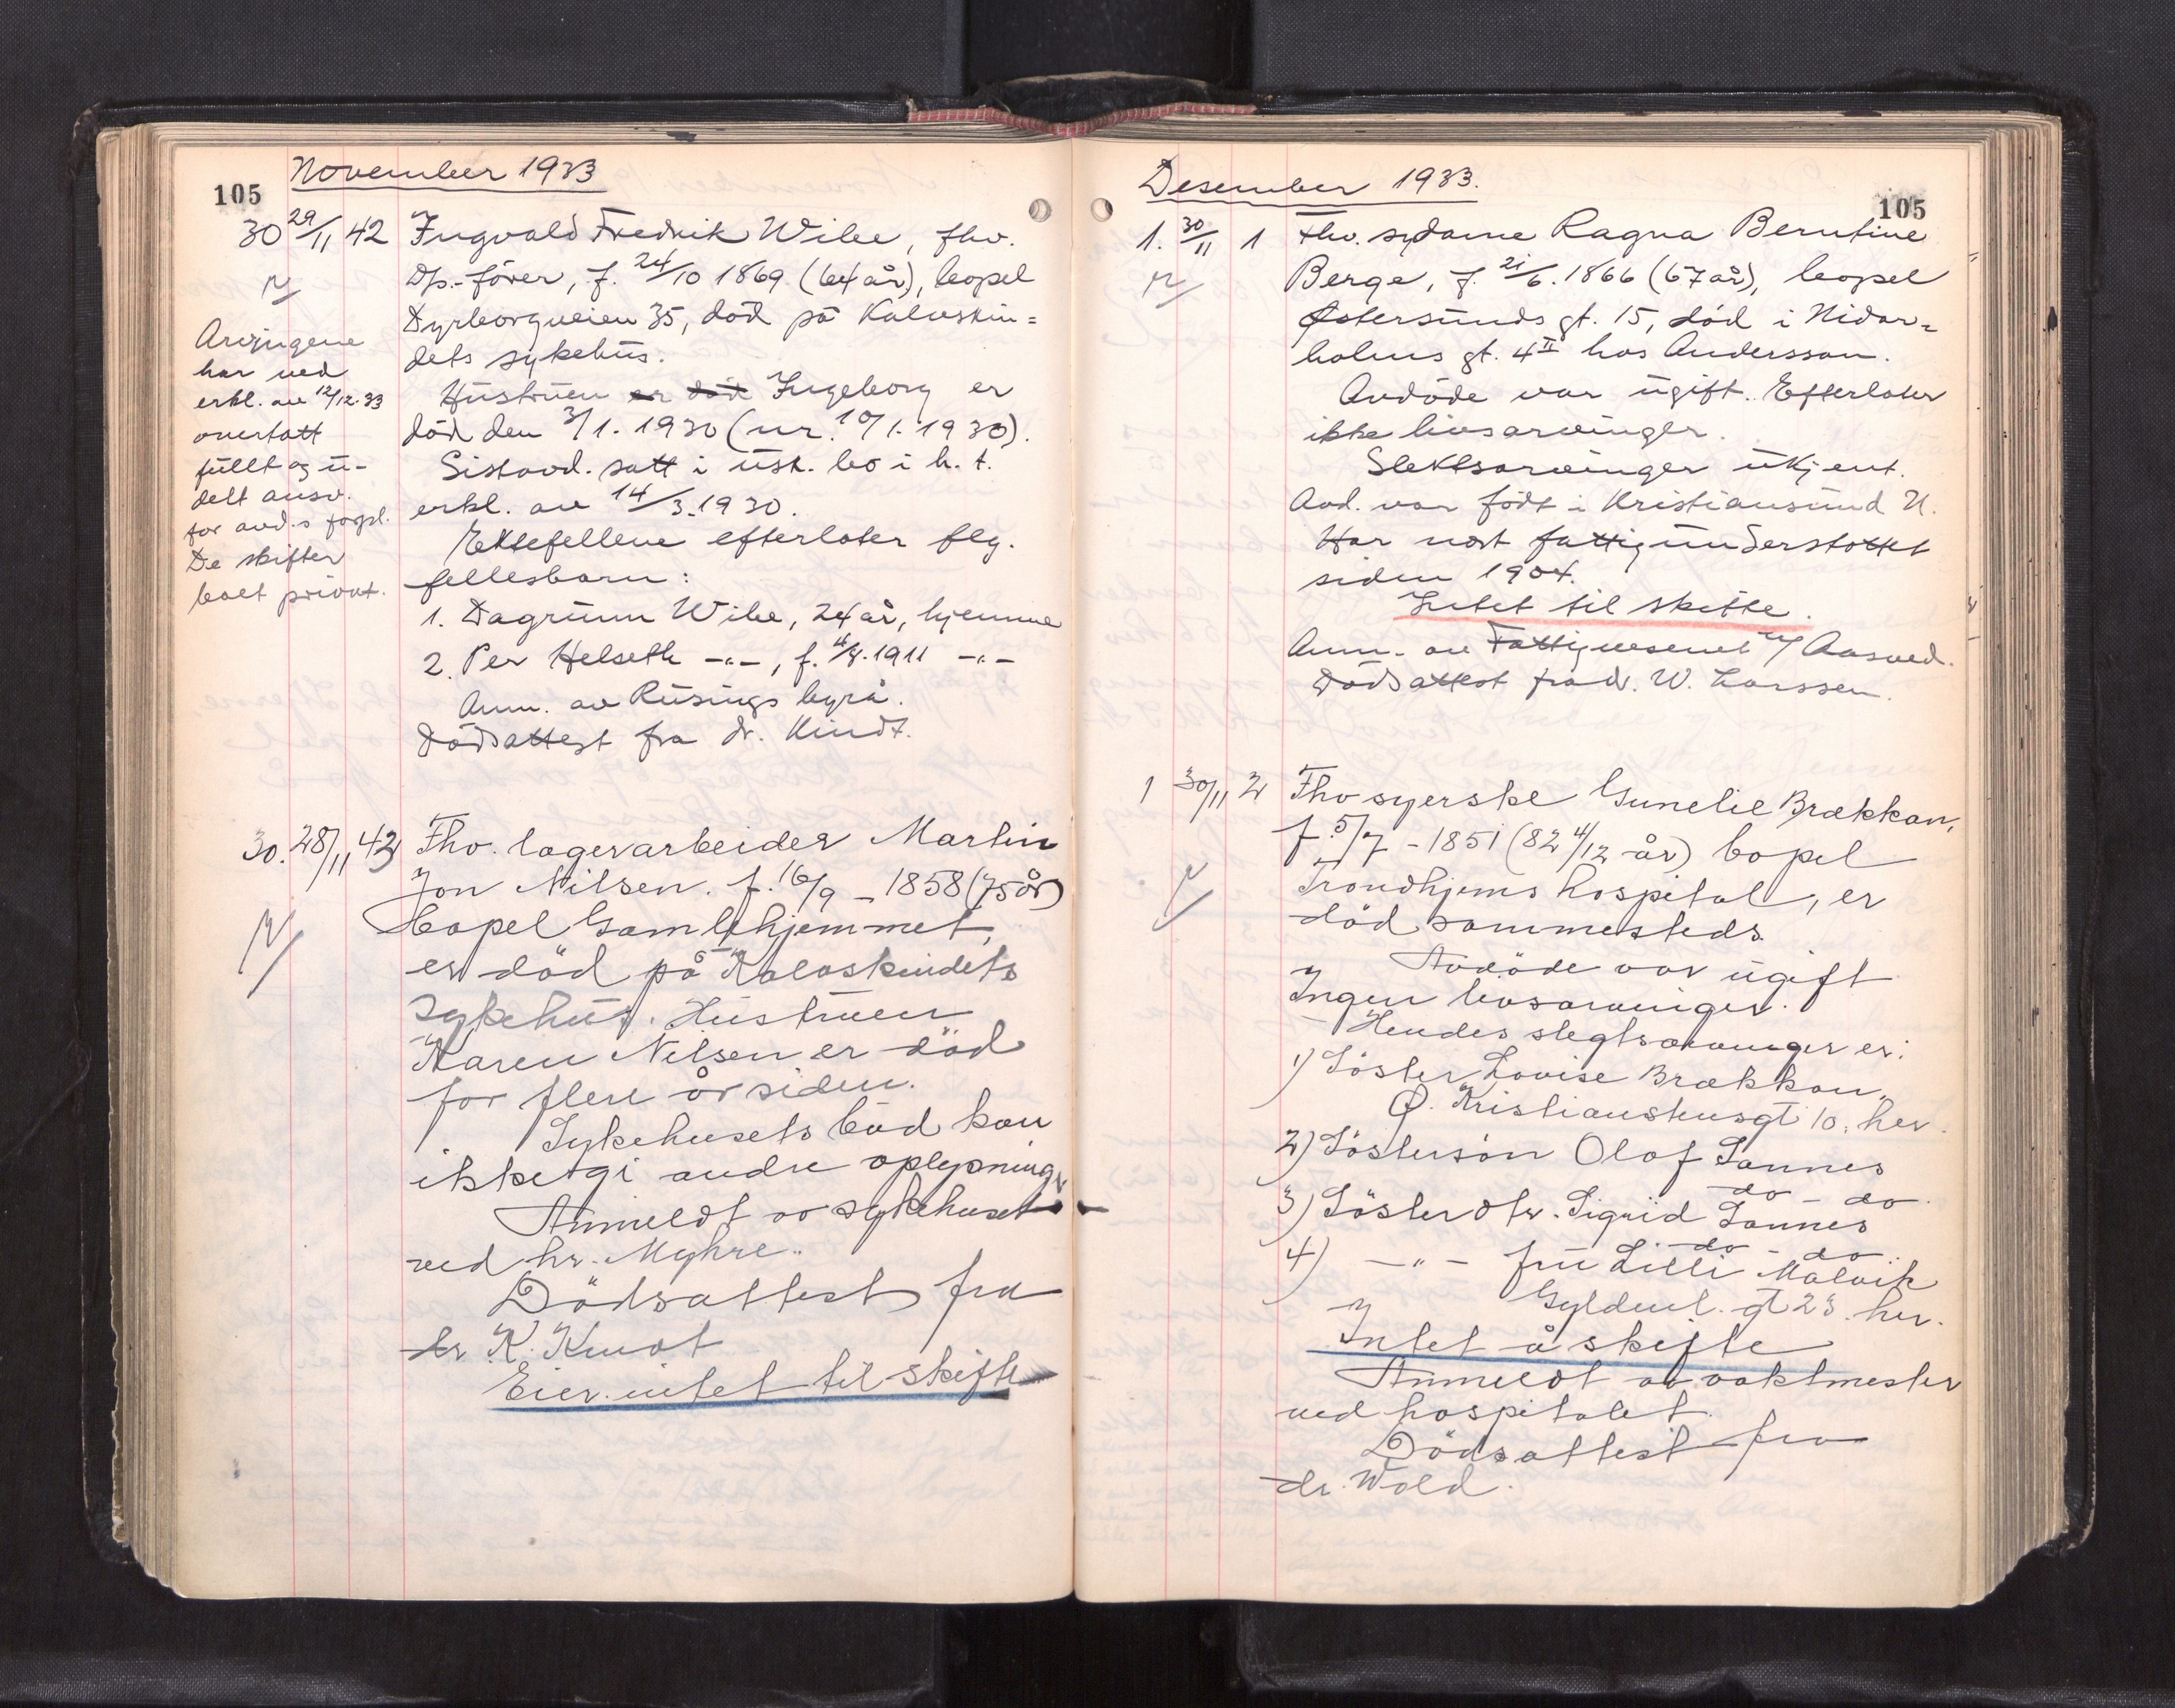 November 1933
105
30 29/11 42 Ingvald Fredrik Wibe, fhv.
Ds.-fører, f. 24/10 1869 (64 år), bopel
Dyrborgveien 35, död på Kalvskin=
dets sykehus.
Hustruen er död Ingeborg er
död den 3/1. 1930 (nr. 10/1.1930).
Sistavd. satt i usk. bo i h. t.
erkl. av 14/3.1930.
Ektefellene efterlater flg.
fellesbarn:
1. Dagrunn Wibe, 24 år, hjemme
2. Per Helseth -"-, f. 4/8.1911 -"-
Anm. av Rusings byrå.
Dödsattest fra dr. Kindt.
Arvingene
har ved
erkl. av 12/12.33
overtatt
fullt og u-
delt ansv.
for avd.s forpl.
De skifter
boet privat.
30. 28/11 43 Fhv. lagerarbeider Martin
Jon Nilsen. f. 16/9 - 1858 (75 år)
bopel Gamlehjemmet,
er död på Kalvskindets
Sykehus. Hustruen
Karen Nilsen er död
for flere år siden.
Sykehusets bud kan
ikke gi andre oplysninger
Anmeldt av sykehuset
ved hr. Myhre.
Dödsattest fra
dr K. Kindt
Eier intet til skifte
Desember 1933.
105
1. 30/11 1 Fhv. sydame Ragna Berntine
Berge, f. 21/6.1866 (67 år), bopel
Østersunds gt. 15, död i Nidar=
holms gt. 4 II hos Andersson.
Avdöde var ugift. Efterlater
ikke livsarvinger.
Slektsarvinger ukjent.
Avd. var födt i Kristiansund N.
Har vært fattigunderstøttet
siden 1904.
Intet til skifte.
Anm. av Fattigvesenet v/ Aasved.
Dödsattest fra dr. W. Larssen.
1 30/11 2 Fhv syerske Gunelie Brækkan,
f. 5/7 - 1851 (82 4/12 år) bopel
Trondhjems hospital, er
död sammesteds.
Avdöde var ugift
Ingen livsarvinger.
Hendes slegtsarvinger er:
1) Söster Lovise Brækkan,
Ø. Kristianstensgt 10. her.
2) Söstersön Olaf Sannes
do - do
3) Söster dtr. Sigrid Sannes
do - do
4) -"- fru Lilli Malvik
Gyldenl. gt 23. her.
Intet å skifte
Anmeldt av vaktmester
ved hospitalet.
Dödsattest fra
dr. Wold.